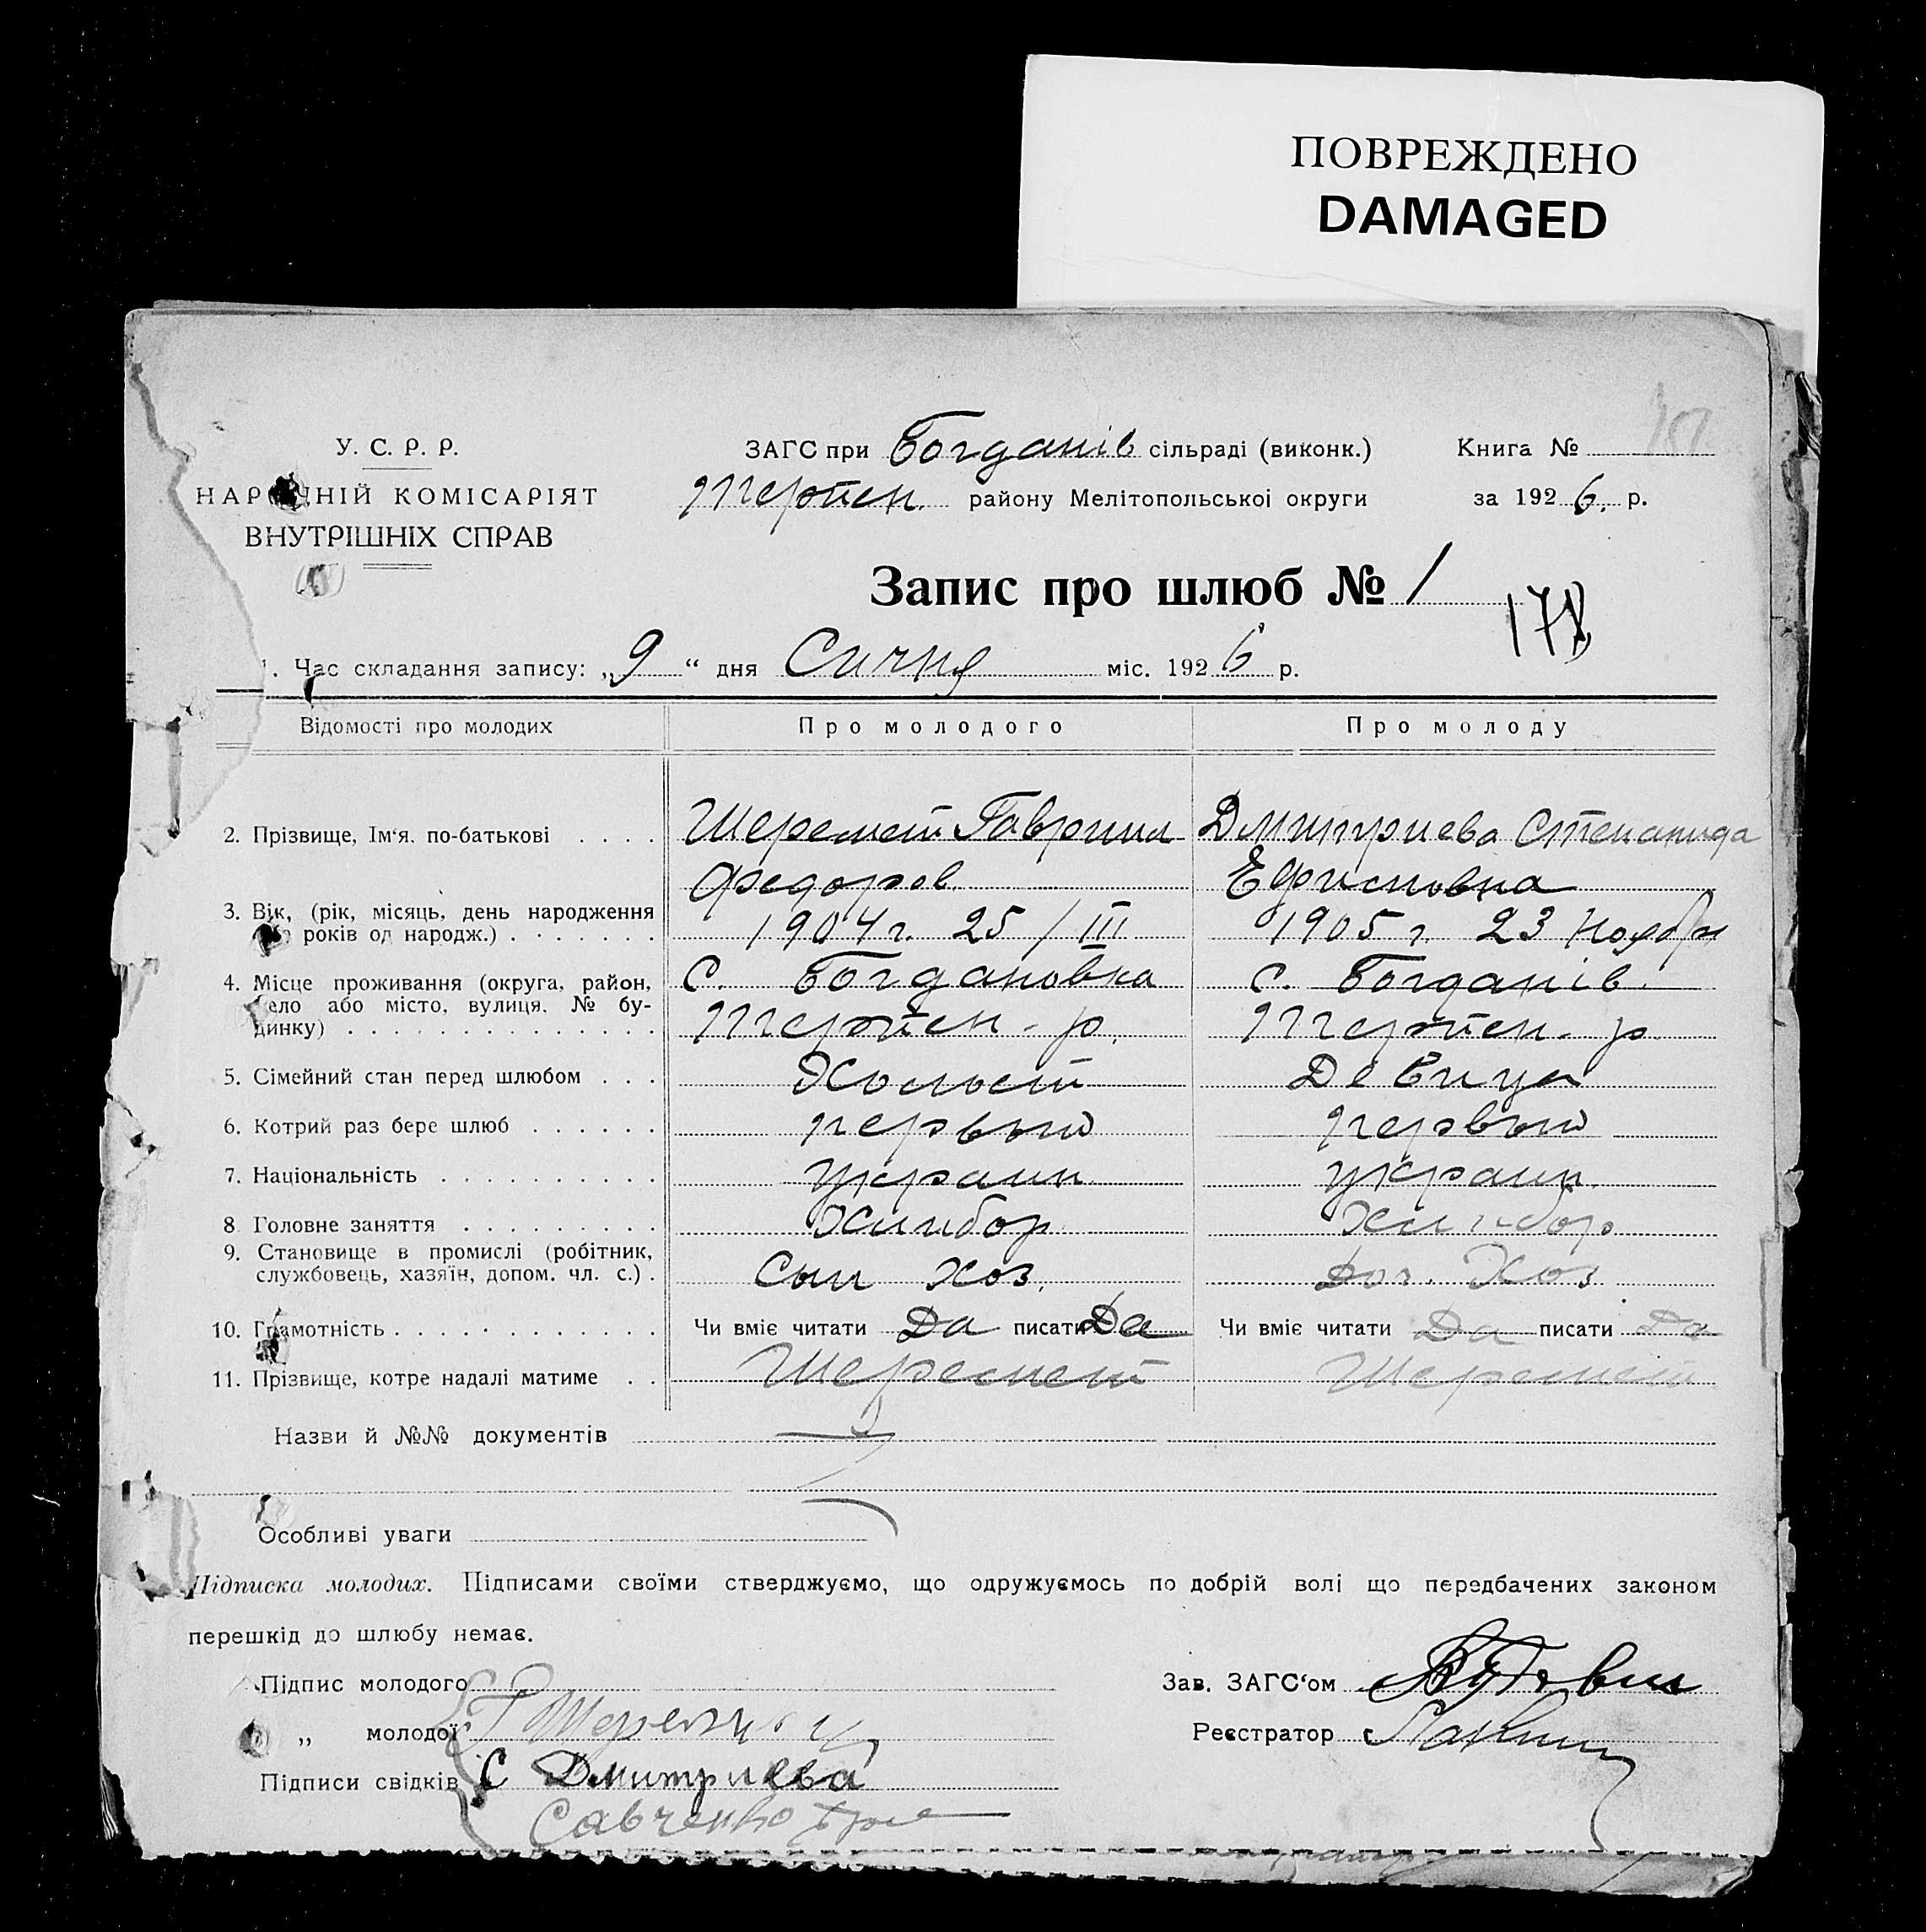 ПОВРЕЖДЕНО
DAMAGED
У. С. Р. Р.
ЗАГС при Богданів сільраді (виконк.)
Книга №
НАР НІЙ КОМІСАРІЯТ
Терпен. району Мелітопольської округи
за 1926. р.
ВНУТРІШНІХ СПРАВ
Запис про шлюб № 1
178
1. Час складання запису: „9“ дня Сичня міс. 1926 р.
Відомості про молодих
Про молодого
Про молоду
2. Прізвище, Ім‘я, по-батькові . . . .
Шеремет Гавриил
Дмитриева Степанида
Федоров.
Ефимовна
3. Вік, (рік, місяць, день народження
років од народж.) . . . . . . .
1904 г. 25 / III
1905 г. 23 Ноября
4. Місце проживання (округа, район,
село або місто, вулиця, № бу-
динку) . . . . . . . . . . . . . .
с. Богдановка
с. Богданів.
Терпен - р.
Терпен - р.
5. Сімейний стан перед шлюбом . . .
Холост
Девица
6. Котрий раз бере шлюб . . . . . .
первый
первый
7. Національність . . . . . . . . . .
украин
украин.
8. Головне заняття . . . . . . . . .
Хлибор
Хлибор.
9. Становище в промислі (робітник,
службовець, хазяїн, допом. чл. с.) .
Сын Хоз.
Доч. Хоз
10. Грамотність . . . . . . . . . . . .
Чи вміє читати Да писати Да
Чи вміє читати Да писати Да
11. Прізвище, котре надалі матиме . .
Шеремет
Шеремет
Назви й №№ документів
Особливі уваги
Підписка молодих. Підписами своїми стверджуємо, що одружуємось по добрій волі що передбачених законом
перешкід до шлюбу немає.
Підпис молодого
Зав. ЗАГС‘ом
„ молодої Г Шеремет
Реєстратор
Підписи свідків С Дмитриева
Савченко